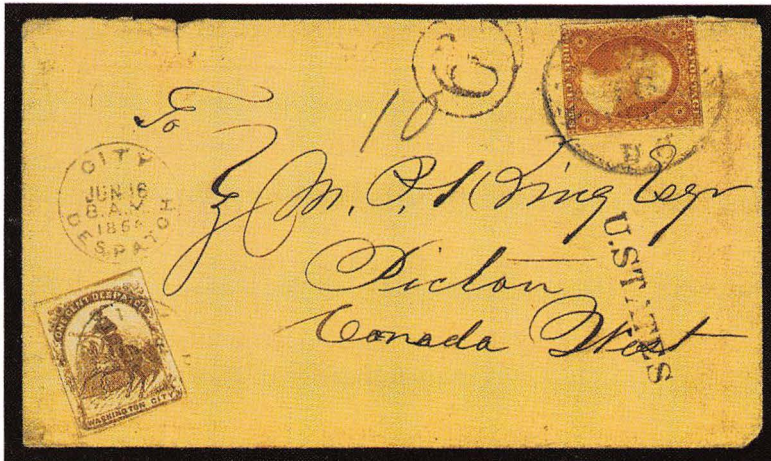 To
10
6
CITY
JUN 16
8. A.M.
186
DESPATCH
M. P. S King Esqr
Picton
Canada West
U.STATES
ONE CENT DESPATCH
WASHINGTON CITY